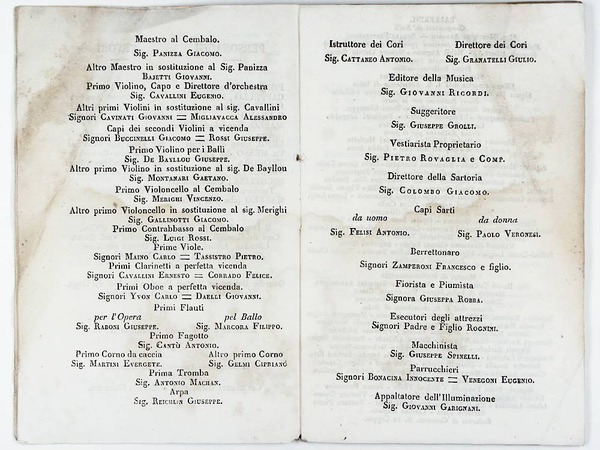 Maestro al Cembalo.
Sig. Panizza Giacomo.
Altro Maestro in sostituzione al Sig. Panizza
Bajetti Giovanni.
Primo Violino, Capo e Direttore d'orchestra
Sig. Cavallini Eugenio.
Altri primi Violini in sostituzione al sig. Cavallini
Signori Cavinati Giovanni = Migliavacca Alessandro
Capi dei secondi Violini a vicenda
Signori Buccinelli Giacomo = Rossi Giuseppe.
Primo Violino per i Balli
Sig. De Bayllou Giuseppe.
Altro primo Violino in sostituzione al sig. De Bayllou
Sig. Montanari Gaetano.
Primo Violoncello al Cembalo
Sig. Merighi Vincenzo.
Altro primo Violoncello in sostituzione al sig. Merighi
Sig. Gallinotti Giacomo.
Primo Contrabbasso al Cembalo
Sig. Luigi Rossi.
Prime Viole.
Signori Maino Carlo = Tassistro Pietro.
Primi Clarinetti a perfetta vicenda
Signori Cavallini Ernesto = Corrado Felice.
Primi Oboe a perfetta vicenda.
Signori Yvon Carlo = Daelli Giovanni.
Primi Flauti
per l'Opera pel Ballo
Sig. Raboni Giuseppe. Sig. Marcora Filippo.
Primo Fagotto
Sig. Cantù Antonio.
Primo Corno da caccia Altro primo Corno
Sig. Martini Evergete. Sig. Gelmi Cipriano
Prima Tromba
Sig. Antonio Machan.
Arpa
Sig. Reichlin Giuseppe.
Istruttore dei Cori Direttore dei Cori
Sig. Cattaneo Antonio. Sig. Granatelli Giulio.
Editore della Musica
Sig. Giovanni Ricordi.
Suggeritore
Sig. Giuseppe Grolli.
Vestiarista Proprietario
Sig. Pietro Rovaglia e Comp.
Direttore della Sartoria
Sig. Colombo Giacomo.
Capi Sarti
da uomo da donna
Sig. Felisi Antonio. Sig. Paolo Veronesi.
Berrettonaro
Signori Zamperoni Francesco e figlio.
Fiorista e Piumista
Signora Giuseppa Robba.
Esecutori degli attrezzi
Signori Padre e Figlio Rognini.
Macchinista
Sig. Giuseppe Spinelli.
Parrucchieri
Signori Bonacina Innocente = Venegoni Eugenio.
Appaltatore dell'Illuminazione
Sig. Giovanni Garignani.